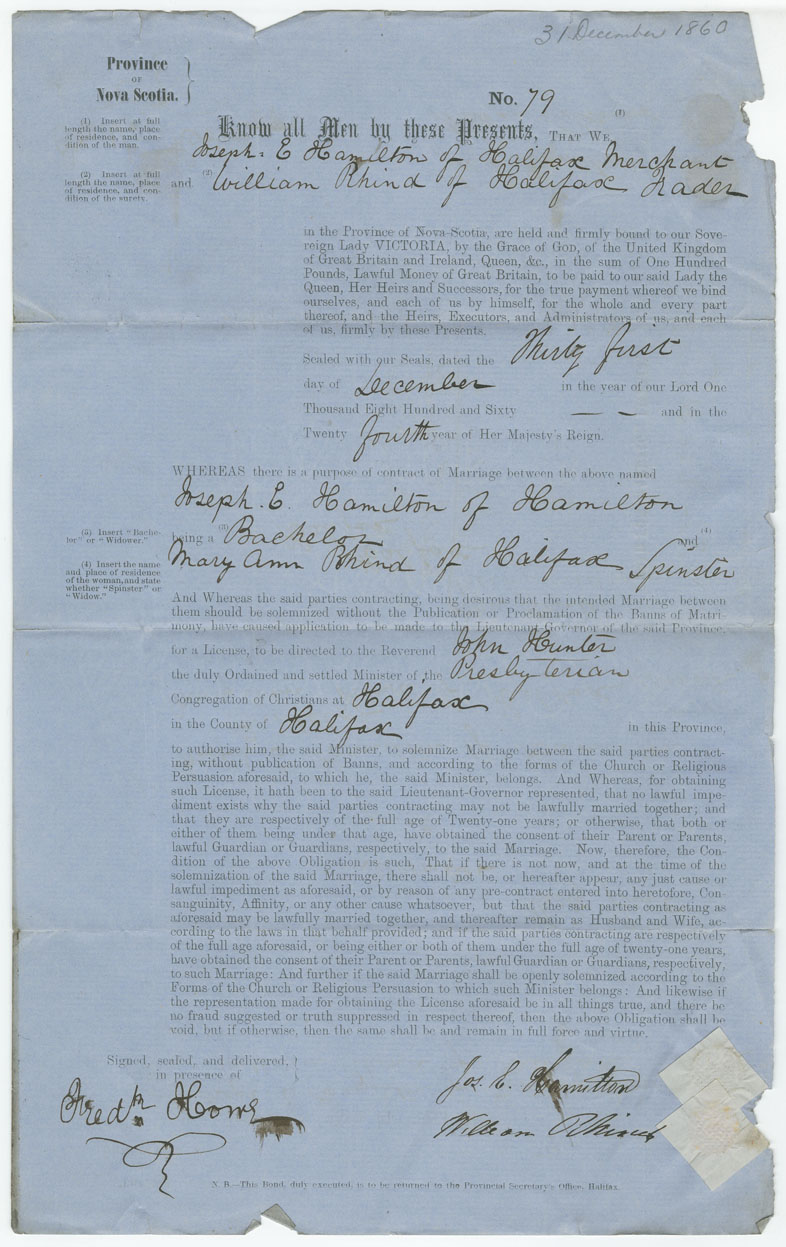 31 December 1860
Province
OF
Nova Scotia.
No. 79
(1) Insert at full
length the name, place
of residence, and con-
dition of the man.
(1)
Know all Men by these Presents, THAT WE
Joseph. E Hamilton of Halifax Merchant
(2) Insert at full
length the name, place
of residence, and con-
dition of the surety.
and (2) William Rhind of Halifax Trader
in the Province of Nova Scotia, are held and firmly bound to our Sove-
reign Lady VICTORIA, by the Grace of GOD, of the United Kingdom
of Great Britain and Ireland, Queen, &c., in the sum of One Hundred
Pounds, Lawful Money of Great Britain, to be paid to our said Lady the
Queen, Her Heirs and Successors, for the true payment whereof we bind
ourselves, and each of us by himself, for the whole and every part
thereof, and the Heirs, Executors, and Administrators of us, and each
of us, firmly by these Presents.
Sealed with our Seals, dated the Thirty first
day of December in the year of our Lord One
Thousand Eight Hundred and Sixty — — and in the
Twenty fourth year of Her Majesty's Reign.
WHEREAS there is a purpose of contract of Marriage between the above named
Joseph. E. Hamilton of Hamilton
(3) Insert "Bache-
lor" or "Widower."
being a (3) Bachelor and (4)
(4) Insert the name
and place of residence
of the woman, and state
whether "Spinster" or
"Widow."
Mary Ann Rhind of Halifax Spinster
And Whereas the said parties contracting, being desirous that the intended Marriage between
them should be solemnized without the Publication or Proclamation of the Banns of Matri-
mony, have caused application to be made to the Lieutenant-Governor of the said Province,
for a License, to be directed to the Reverend John Hunter
the duly Ordained and settled Minister of the Presbyterian
Congregation of Christians at Halifax
in the County of Halifax in this Province,
to authorise him, the said Minister, to solemnize Marriage between the said parties contract-
ing, without publication of Banns, and according to the forms of the Church or Religious
Persuasion aforesaid, to which he, the said Minister, belongs. And Whereas, for obtaining
such License, it hath been to the said Lieutenant-Governor represented, that no lawful impe-
diment exists why the said parties contracting may not be lawfully married together; and
that they are respectively of the full age of Twenty-one years; or otherwise, that both or
either of them being under that age, have obtained the consent of their Parent or Parents,
lawful Guardian or Guardians, respectively, to the said Marriage. Now, therefore, the Con-
dition of the above Obligation is such, That if there is not now, and at the time of the
solemnization of the said Marriage, there shall not be, or hereafter appear, any just cause or
lawful impediment as aforesaid, or by reason of any pre-contract entered into heretofore, Con-
sanguinity, Affinity, or any other cause whatsoever, but that the said parties contracting as
aforesaid may be lawfully married together, and thereafter remain as Husband and Wife, ac-
cording to the laws in that behalf provided; and if the said parties contracting are respectively
of the full age aforesaid, or being either or both of them under the full age of twenty-one years,
have obtained the consent of their Parent or Parents, lawful Guardian or Guardians, respectively,
to such Marriage: And further if the said Marriage shall be openly solemnized according to the
Forms of the Church or Religious Persuasion to which such Minister belongs: And likewise if
the representation made for obtaining the License aforesaid be in all things true, and there be
no fraud suggested or truth suppressed in respect thereof, then the above Obligation shall be
void, but if otherwise, then the same shall be and remain in full force and virtue.
Signed, sealed, and delivered,
in presence of
Jos. E. Hamilton
Fredk Howe
William Rhind
N. B.—This Bond, duly executed, is to be returned to the Provincial Secretary's Office, Halifax.